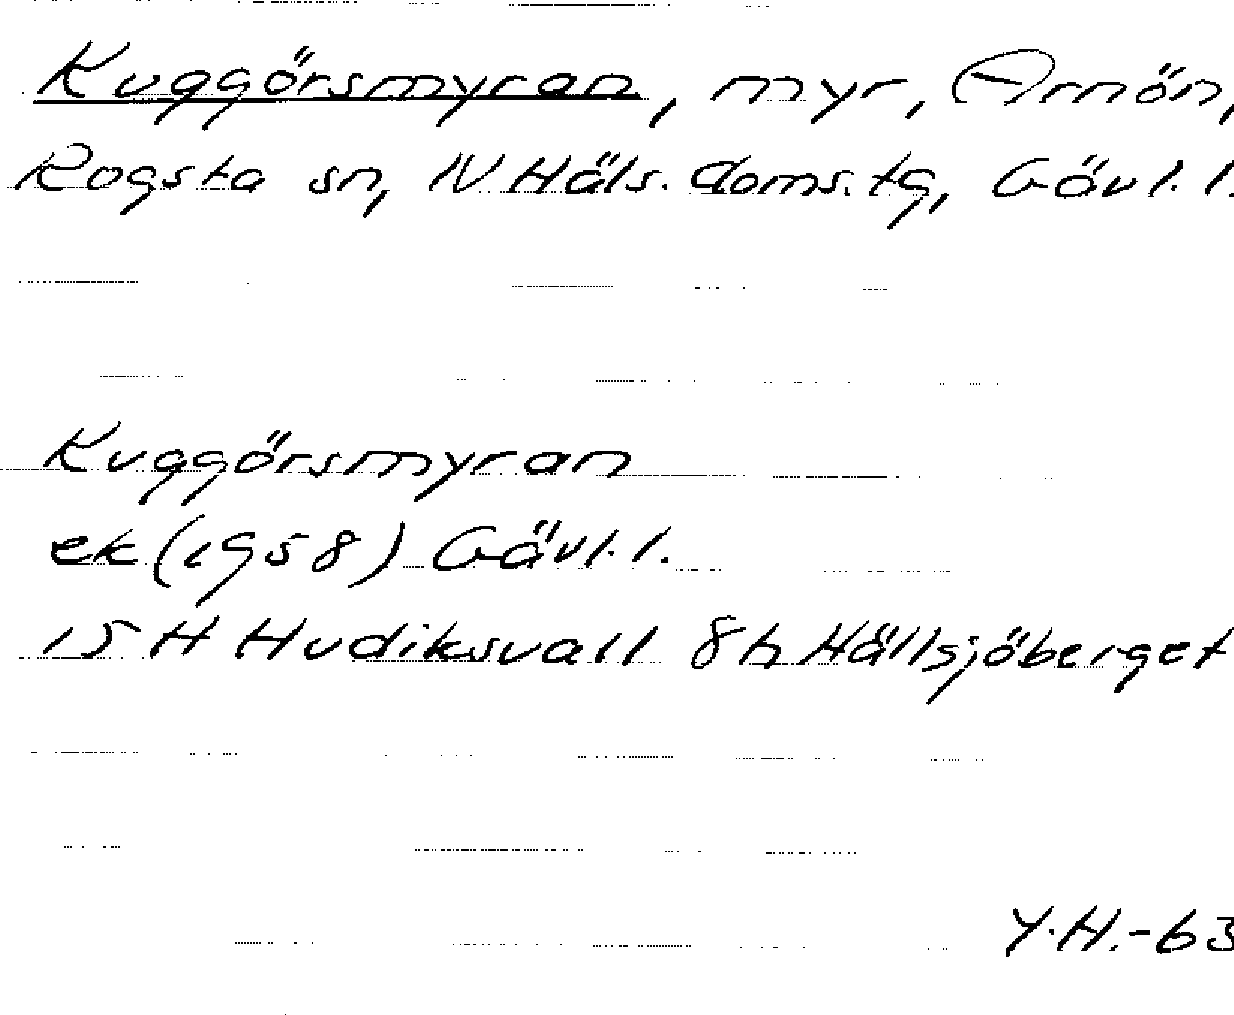 Kuggörsmyran, myr, Arnön,
Rogsta sn, N Häls. doms.tg, Gävl.l.
Kuggörsmyran
ek (1958) Gävl.l.
15 H Hudiksvall 8 h Hällsjöberget
Y.H.-63